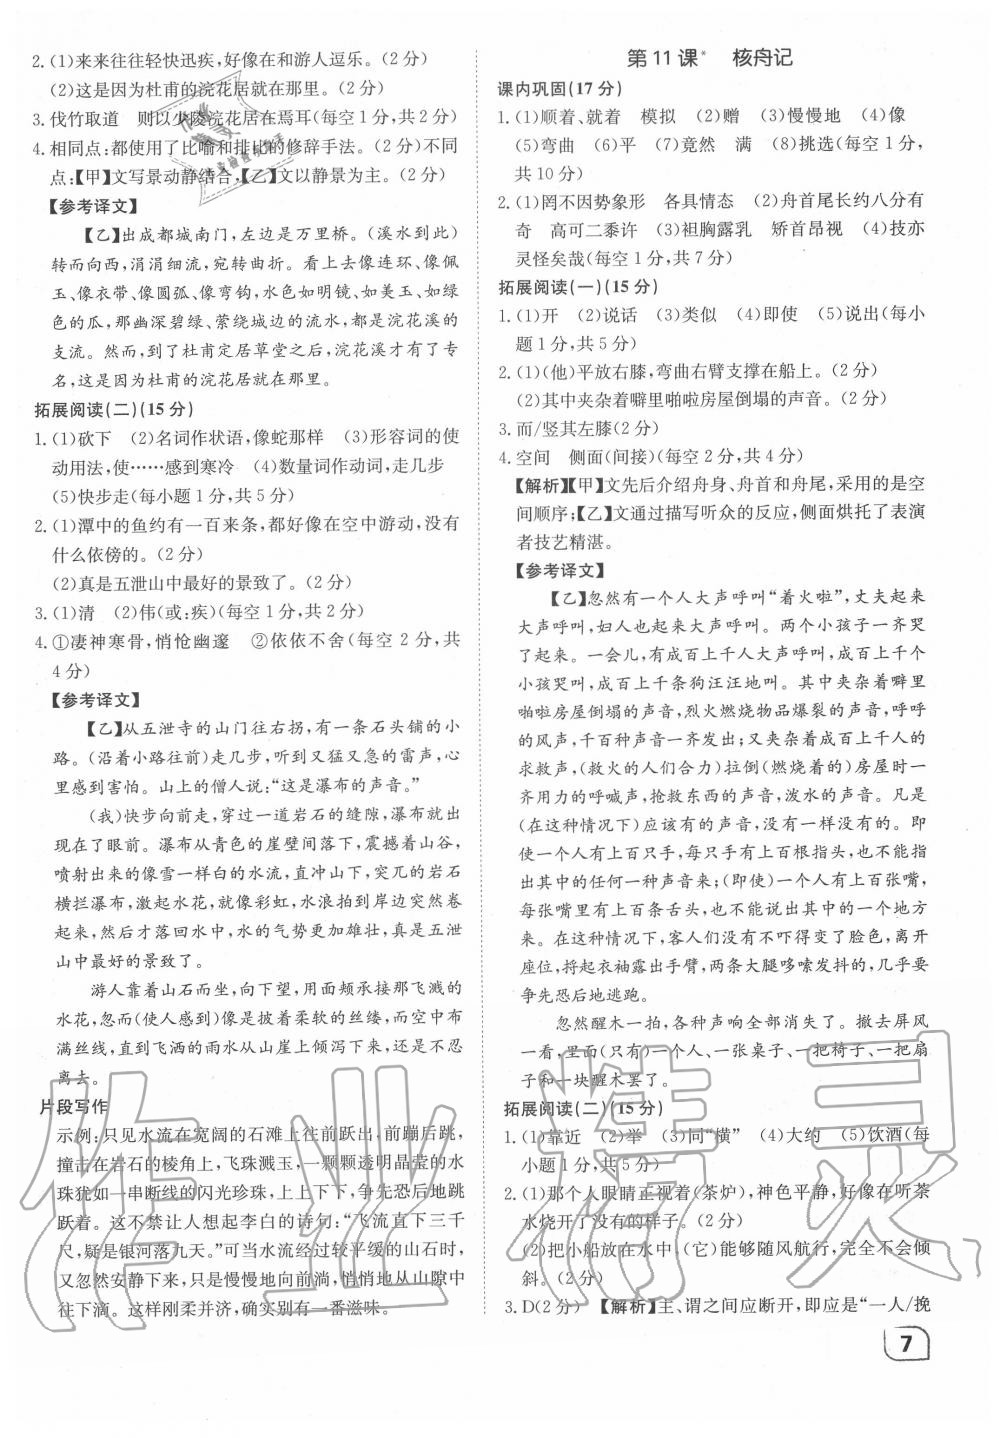 2. (1)来来往往轻快迅疾,好像在和游人逗乐。(2分)
(2)这是因为杜甫的浣花居就在那里。(2分)
3. 伐竹取道　则以少陵浣花居在焉耳(每空1分,共2分)
4. 相同点:都使用了比喻和排比的修辞手法。(2分)不同
点:【甲】文写景动静结合,【乙】文以静景为主。(2分)
【参考译文】
【乙】出成都城南门,左边是万里桥。(溪水到此)
转而向西,涓涓细流,宛转曲折。看上去像连环、像佩
玉、像衣带、像圆弧、像弯钩,水色如明镜、如美玉、如绿
色的瓜,那幽深碧绿、萦绕城边的流水,都是浣花溪的
支流。然而,到了杜甫定居草堂之后,浣花溪才有了专
名,这是因为杜甫的浣花居就在那里。
拓展阅读(二)(15分)
1. (1)砍下　(2)名词作状语,像蛇那样　(3)形容词的使
动用法,使……感到寒冷　(4)数量词作动词,走几步
(5)快步走(每小题1分,共5分)
2. (1)潭中的鱼约有一百来条,都好像在空中游动,没有
什么依傍的。(2分)
(2)真是五泄山中最好的景致了。(2分)
3. (1)清　(2)伟(或:疾)(每空1分,共2分)
4. ①凄神寒骨,悄怆幽邃　②依依不舍(每空2分,共
4分)
【参考译文】
【乙】从五泄寺的山门往右拐,有一条石头铺的小
路。(沿着小路往前)走几步,听到又猛又急的雷声,心
里感到害怕。山上的僧人说:“这是瀑布的声音。”
(我)快步向前走,穿过一道岩石的缝隙,瀑布就出
现在了眼前。瀑布从青色的崖壁间落下,震撼着山谷,
喷射出来的像雪一样白的水流,直冲而下,突兀的岩石
横拦瀑布,激起水花,就像彩虹,水浪拍到岸边突然卷
起来,然后才落回水中,水的气势更加雄壮,真是五泄
山中最好的景致了。
游人靠着山石而坐,向下望,用面颊承接那飞溅的
水花,忽而(使人感到)像是披着柔软的丝缕,而空中布
满丝线,直到飞洒的雨水从山崖上倾泻下来,还是不忍
离去。
片段写作
示例:只见水流在宽阔的石滩上往前跃出,前蹦后跳,
撞击在岩石的棱角上,飞珠溅玉,一颗颗透明晶莹的水
珠犹如一串断线的闪光珍珠,上上下下,争先恐后地跳
跃着。这不禁让人想起李白的诗句:“飞流直下三千
尺,疑是银河落九天。”可当水流经过较平缓的山石时,
又忽然安静下来,只是慢慢地向前淌,悄悄地从山隙中
往下滴。这样刚柔并济,确实别有一番滋味。
第11课*　核舟记
课内巩固(17分)
1. (1)顺着、就着　模拟　(2)赠　(3)慢慢地　(4)像
(5)弯曲　(6)平　(7)竟然　满　(8)挑选(每空1分,
共10分)
2. (1)罔不因势象形　各具情态　(2)舟首尾长约八分有
奇　高可二黍许　(3)袒胸露乳　矫首昂视　(4)技亦
灵怪矣哉(每空1分,共7分)
拓展阅读(一)(15分)
1. (1)开　(2)说话　(3)类似　(4)即使　(5)说出(每小
题1分,共5分)
2. (1)(他)平放右膝,弯曲右臂支撑在船上。(2分)
(2)其中夹杂着噼里啪啦房屋倒塌的声音。(2分)
3. 而/竖其左膝(2分)
4. 空间　侧面(间接)(每空2分,共4分)
【解析】【甲】文先后介绍舟身、舟首和舟尾,采用的是空
间顺序;【乙】文通过描写听众的反应,侧面烘托了表演
者技艺精湛。
【参考译文】
【乙】忽然有一个人大声呼叫“着火啦”,丈夫起来
大声呼叫,妇人也起来大声呼叫。两个小孩子一齐哭
了起来。一会儿,有成百上千人大声呼叫,成百上千个
小孩哭叫,成百上千条狗汪汪地叫。其中夹杂着噼里
啪啦房屋倒塌的声音,烈火燃烧物品爆裂的声音,呼呼
的风声,千百种声音一齐发出;又夹杂着成百上千人的
求救声,(救火的人们合力)拉倒(燃烧着的)房屋时一
齐用力的呼喊声,抢救东西的声音,泼水的声音。凡是
(在这种情况下)应该有的声音,没有一样没有的。即
使一个人有上百只手,每只手有上百根指头,也不能指
出其中的任何一种声音来;(即使)一个人有上百张嘴,
每张嘴里有上百条舌头,也不能说出其中的一个地方
来。在这种情况下,客人们没有不吓得变了脸色,离开
座位,捋起衣袖露出手臂,两条大腿哆嗦发抖的,几乎要
争先恐后地逃跑。
忽然醒木一拍,各种声响全部消失了。撤去屏风
一看,里面(只有)一个人、一张桌子、一把椅子、一把扇
子和一块醒木罢了。
拓展阅读(二)(15分)
1. (1)靠近　(2)举　(3)同“横”　(4)大约　(5)饮酒(每
小题1分,共5分)
2. (1)那个人眼睛正视着(茶炉),神色平静,好像在听茶
水烧开了没有的样子。(2分)
(2)把小船放在水中,(它)能够随风航行,完全不会倾
斜。(2分)
3. D(2分)　【解析】主、谓之间应断开,即应是“一人/挽
7
作业精灵